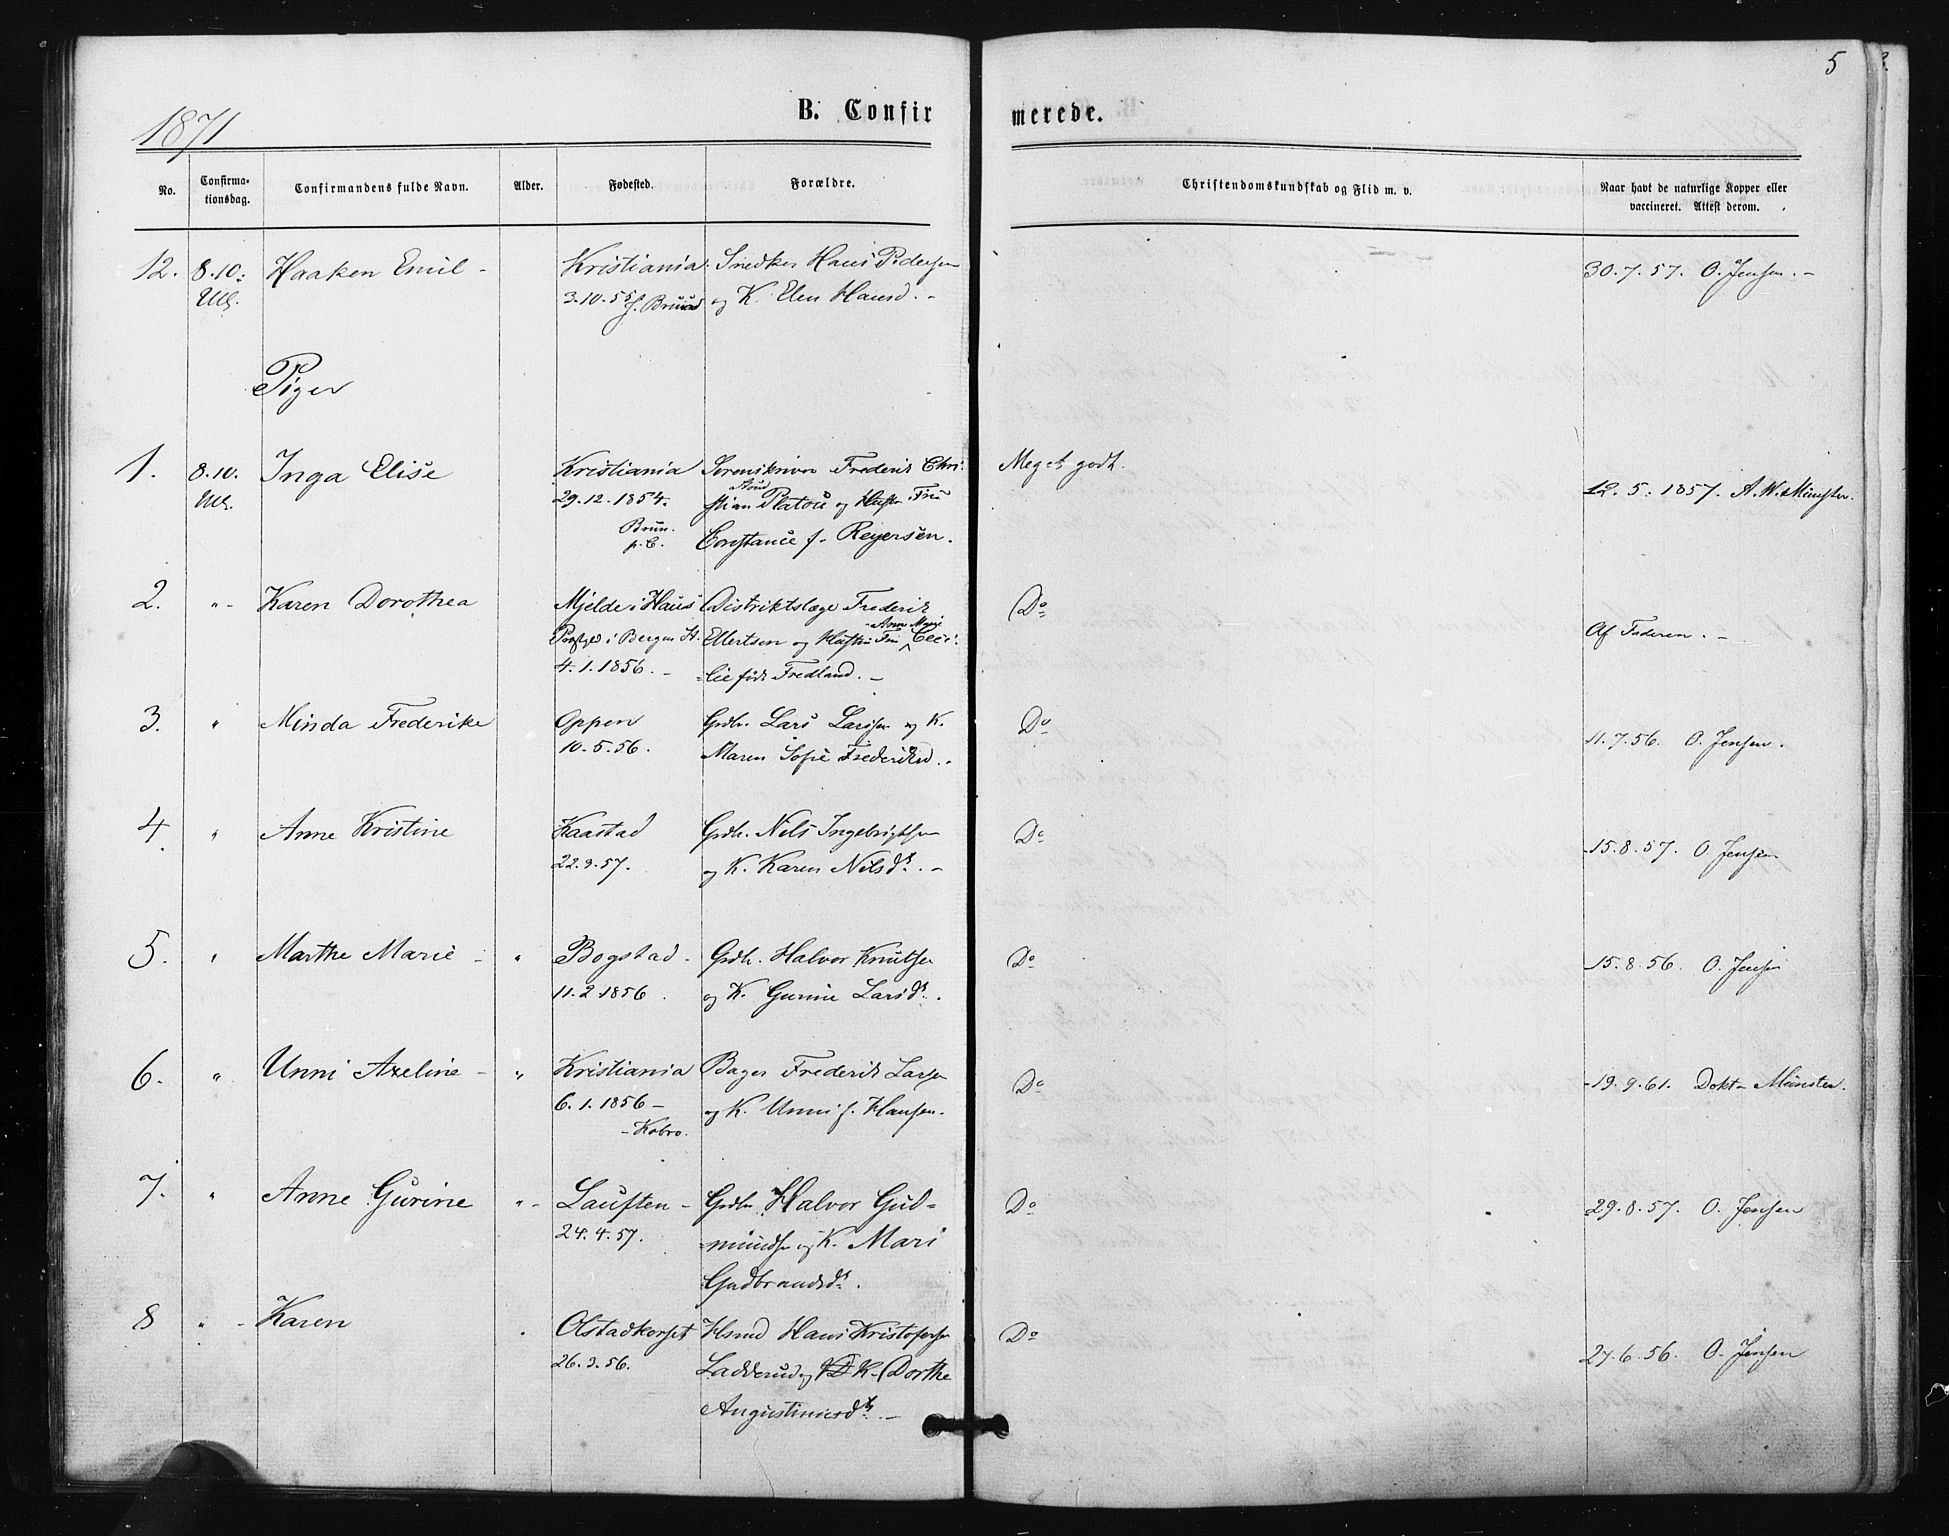 5
1871
B. Confirmerede.
No. Confirma-tionsdag. Confirmandens fulde Navn. Alder. Fødested. Forældre. Christendomskundskab og Flid m. v. Naar havt de naturlige Kopper eller vaccineret. Attest derom.
12. 8.10. Haaken Emil - Kristiania. Snedker Hans Pedersen 30.7.57. O. Jensen. -
Ull. 3.10.55 f. Bruun og K. Elen Hansd. -
Piger
1. 8.10. Inga Elise Kristiania Sorenskriver Frederik Chri- Meget godt. 12.5.1857. A. W. Münster.
Ull. 29.12.1854. stian Stoud Platou og Hustru Fru
Brun. p. C. Constance f. Reyersen.
2. " - Karen Dorothea Mjelde i Haus Distriktslæge Frederik Do Af Faderen. -
Præstgjd i Bergen St. Ellertsen og Hustru Fru Anne Marie Ceci-
4.1.1856. - lie født Fredland. -
3. " Minda Frederike Oppen Grdbr. Lars Larsen og K. Do 11.7.56. O. Jensen.
10.5.56. Maren Sofie Frederiksd. -
4. " Anne Kristine Kaastad Grdbr. Nels Ingebrigtsen Do 15.8.57. O Jensen
22.3.57. og K. Karen Nelsdt. -
5. " Marthe Marie - " Bogstad - Grdb. Halvor Knutsen Do 15.8.56. O. Jensen
11.2.1856. og K. Gurine Larsdt.
6. " Unni Axeline - " Kristiania Bager Frederik Larsen Do 19.9.61. Dokt- Münster.
6.1.1856 - og K. Unni f. Hansen.
- Kobro.
7. " Anne Gurine " - Lauften - Grdbr. Halvor Gud= Do 29.8.57. O. Jensen
24.4.57. =mundsen og K. Mari
Gudbrandsdt.
8 " - Karen Olstadkorset Hsmd Hans Kristofersen Do 27.6.56. O. Jensen
26.3.56. Ladderud og K. Dorthe
Augustinusdt. -